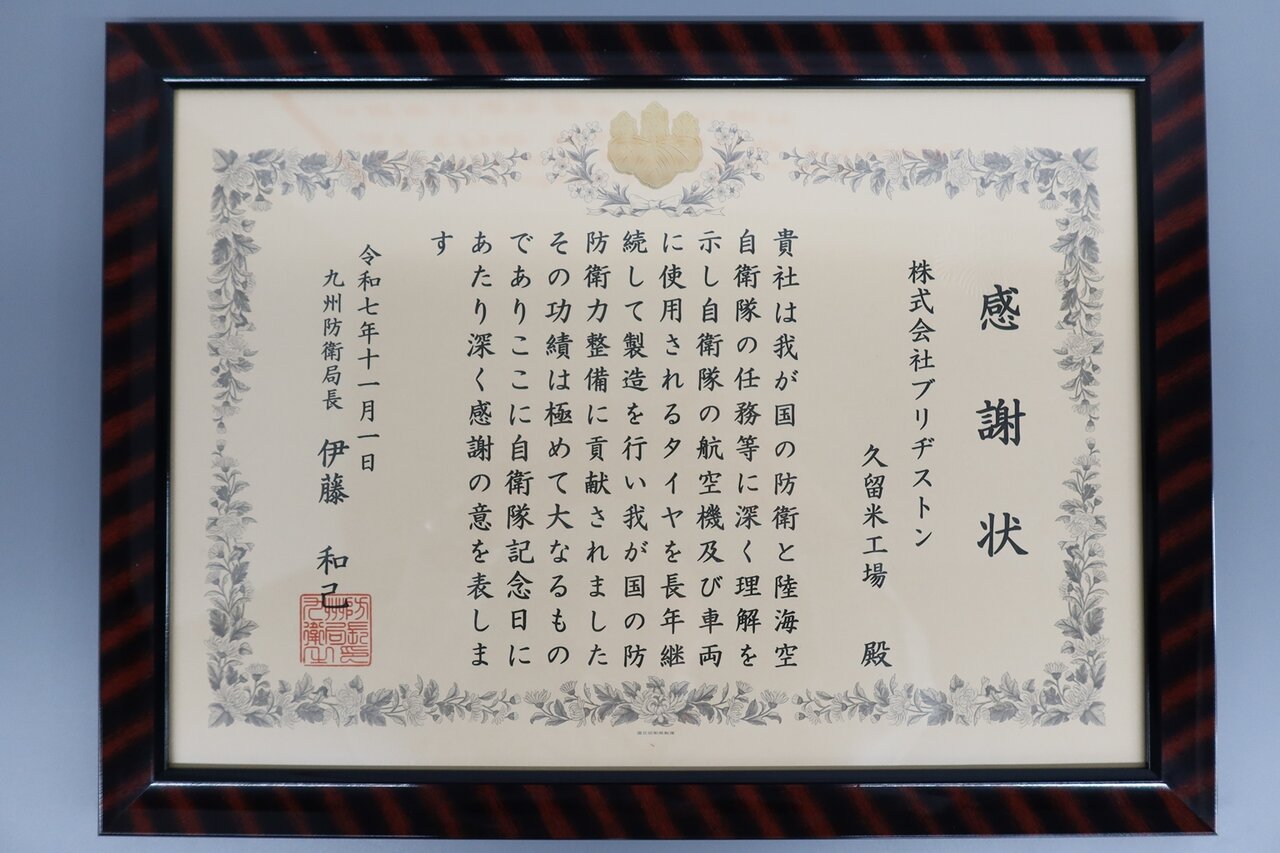 感謝状
株式会社ブリヂストン
久留米工場　殿
貴社は我が国の防衛と陸海空
自衛隊の任務等に深く理解を
示し自衛隊の航空機及び車両
に使用されるタイヤを長年継
続して製造を行い我が国の防
防衛力整備に貢献されました
その功績は極めて大なるもの
でありここに自衛隊記念日に
あたり深く感謝の意を表しま
す
令和七年十一月一日
九州防衛局長　伊藤　和己